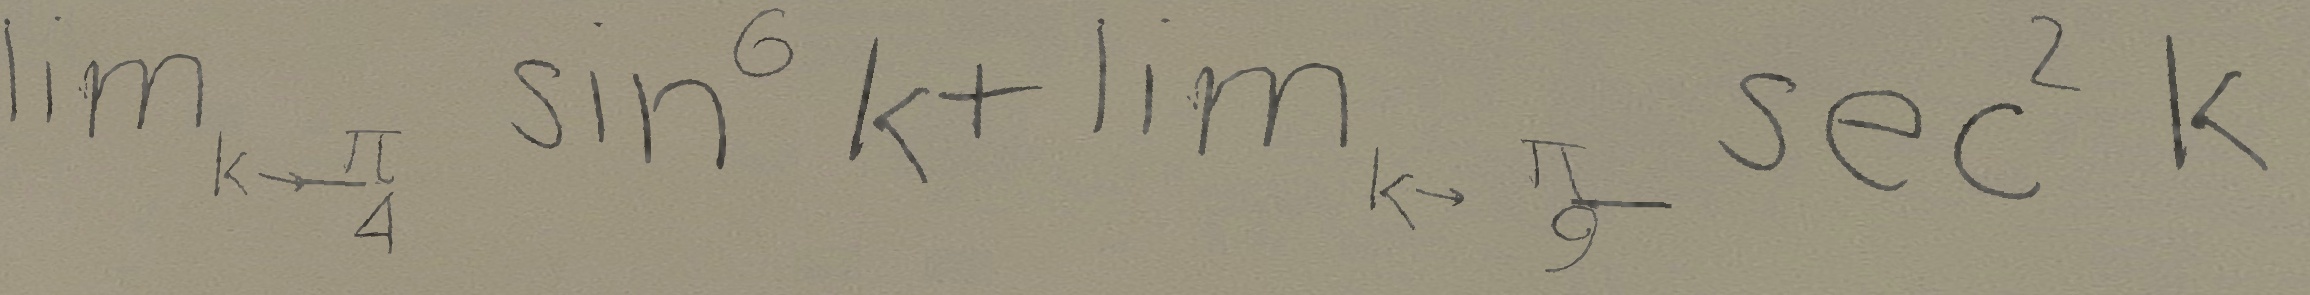 \lim_{k \to \frac{\pi}{4}} \sin^6 k + \lim_{k \to \frac{\pi}{9}} \sec^2 k